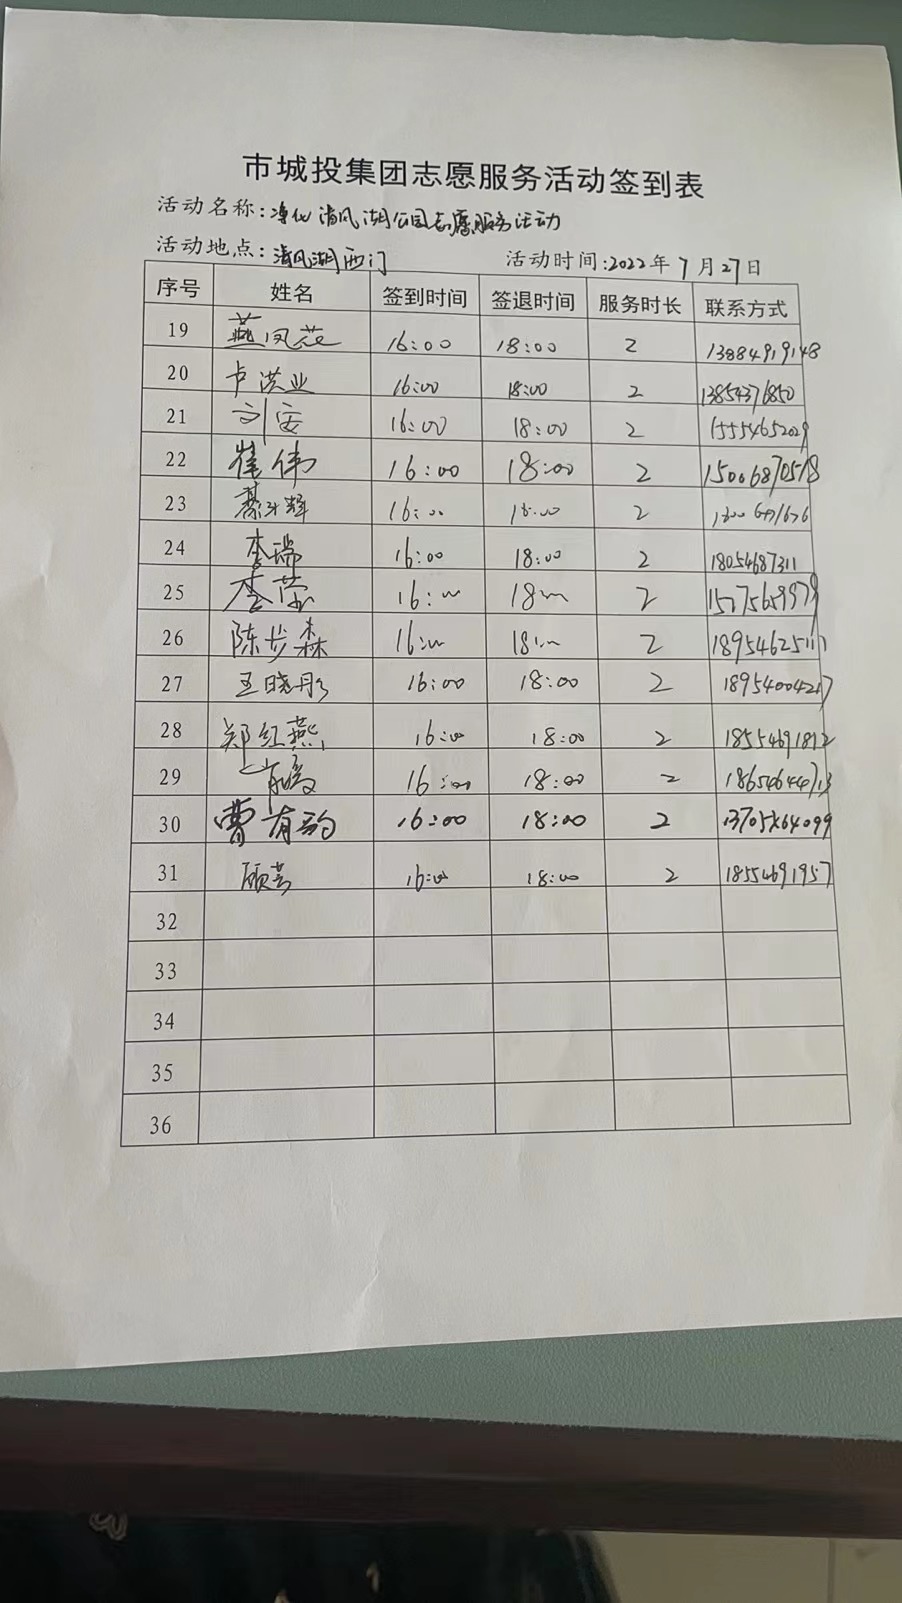 市城投集团志愿服务活动签到表
活动名称:净化清风湖公园志愿服务活动
活动地点:清风湖西门 活动时间:2022年7月27日
序号 姓名 签到时间 签退时间 服务时长 联系方式
19 燕凤花 16:00 18:00 2 13884919148
20 卢洪业 16:00 18:00 2 13854376850
21 刘安 16:00 18:00 2 15554652029
22 崔伟 16:00 18:00 2 15006870518
23 16:00 18:00 2
24 李瑞 16:00 18:00 2 18054687311
25 李荣 16:00 18:00 2 15275659979
26 陈步森 16:00 18:00 2 18954625111
27 王晓彤 16:00 18:00 2 18954004217
28 郑红燕 16:00 18:00 2 18554691812
29 16:00 18:00 2 18654644713
30 曹有韵 16:00 18:00 2
31 顾芸 16:00 18:00 2 18554691957
32
33
34
35
36